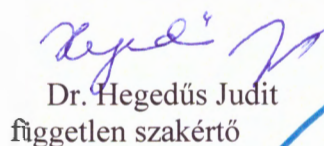 Hegedű
Dr. Hegedűs Judit
független szakértő